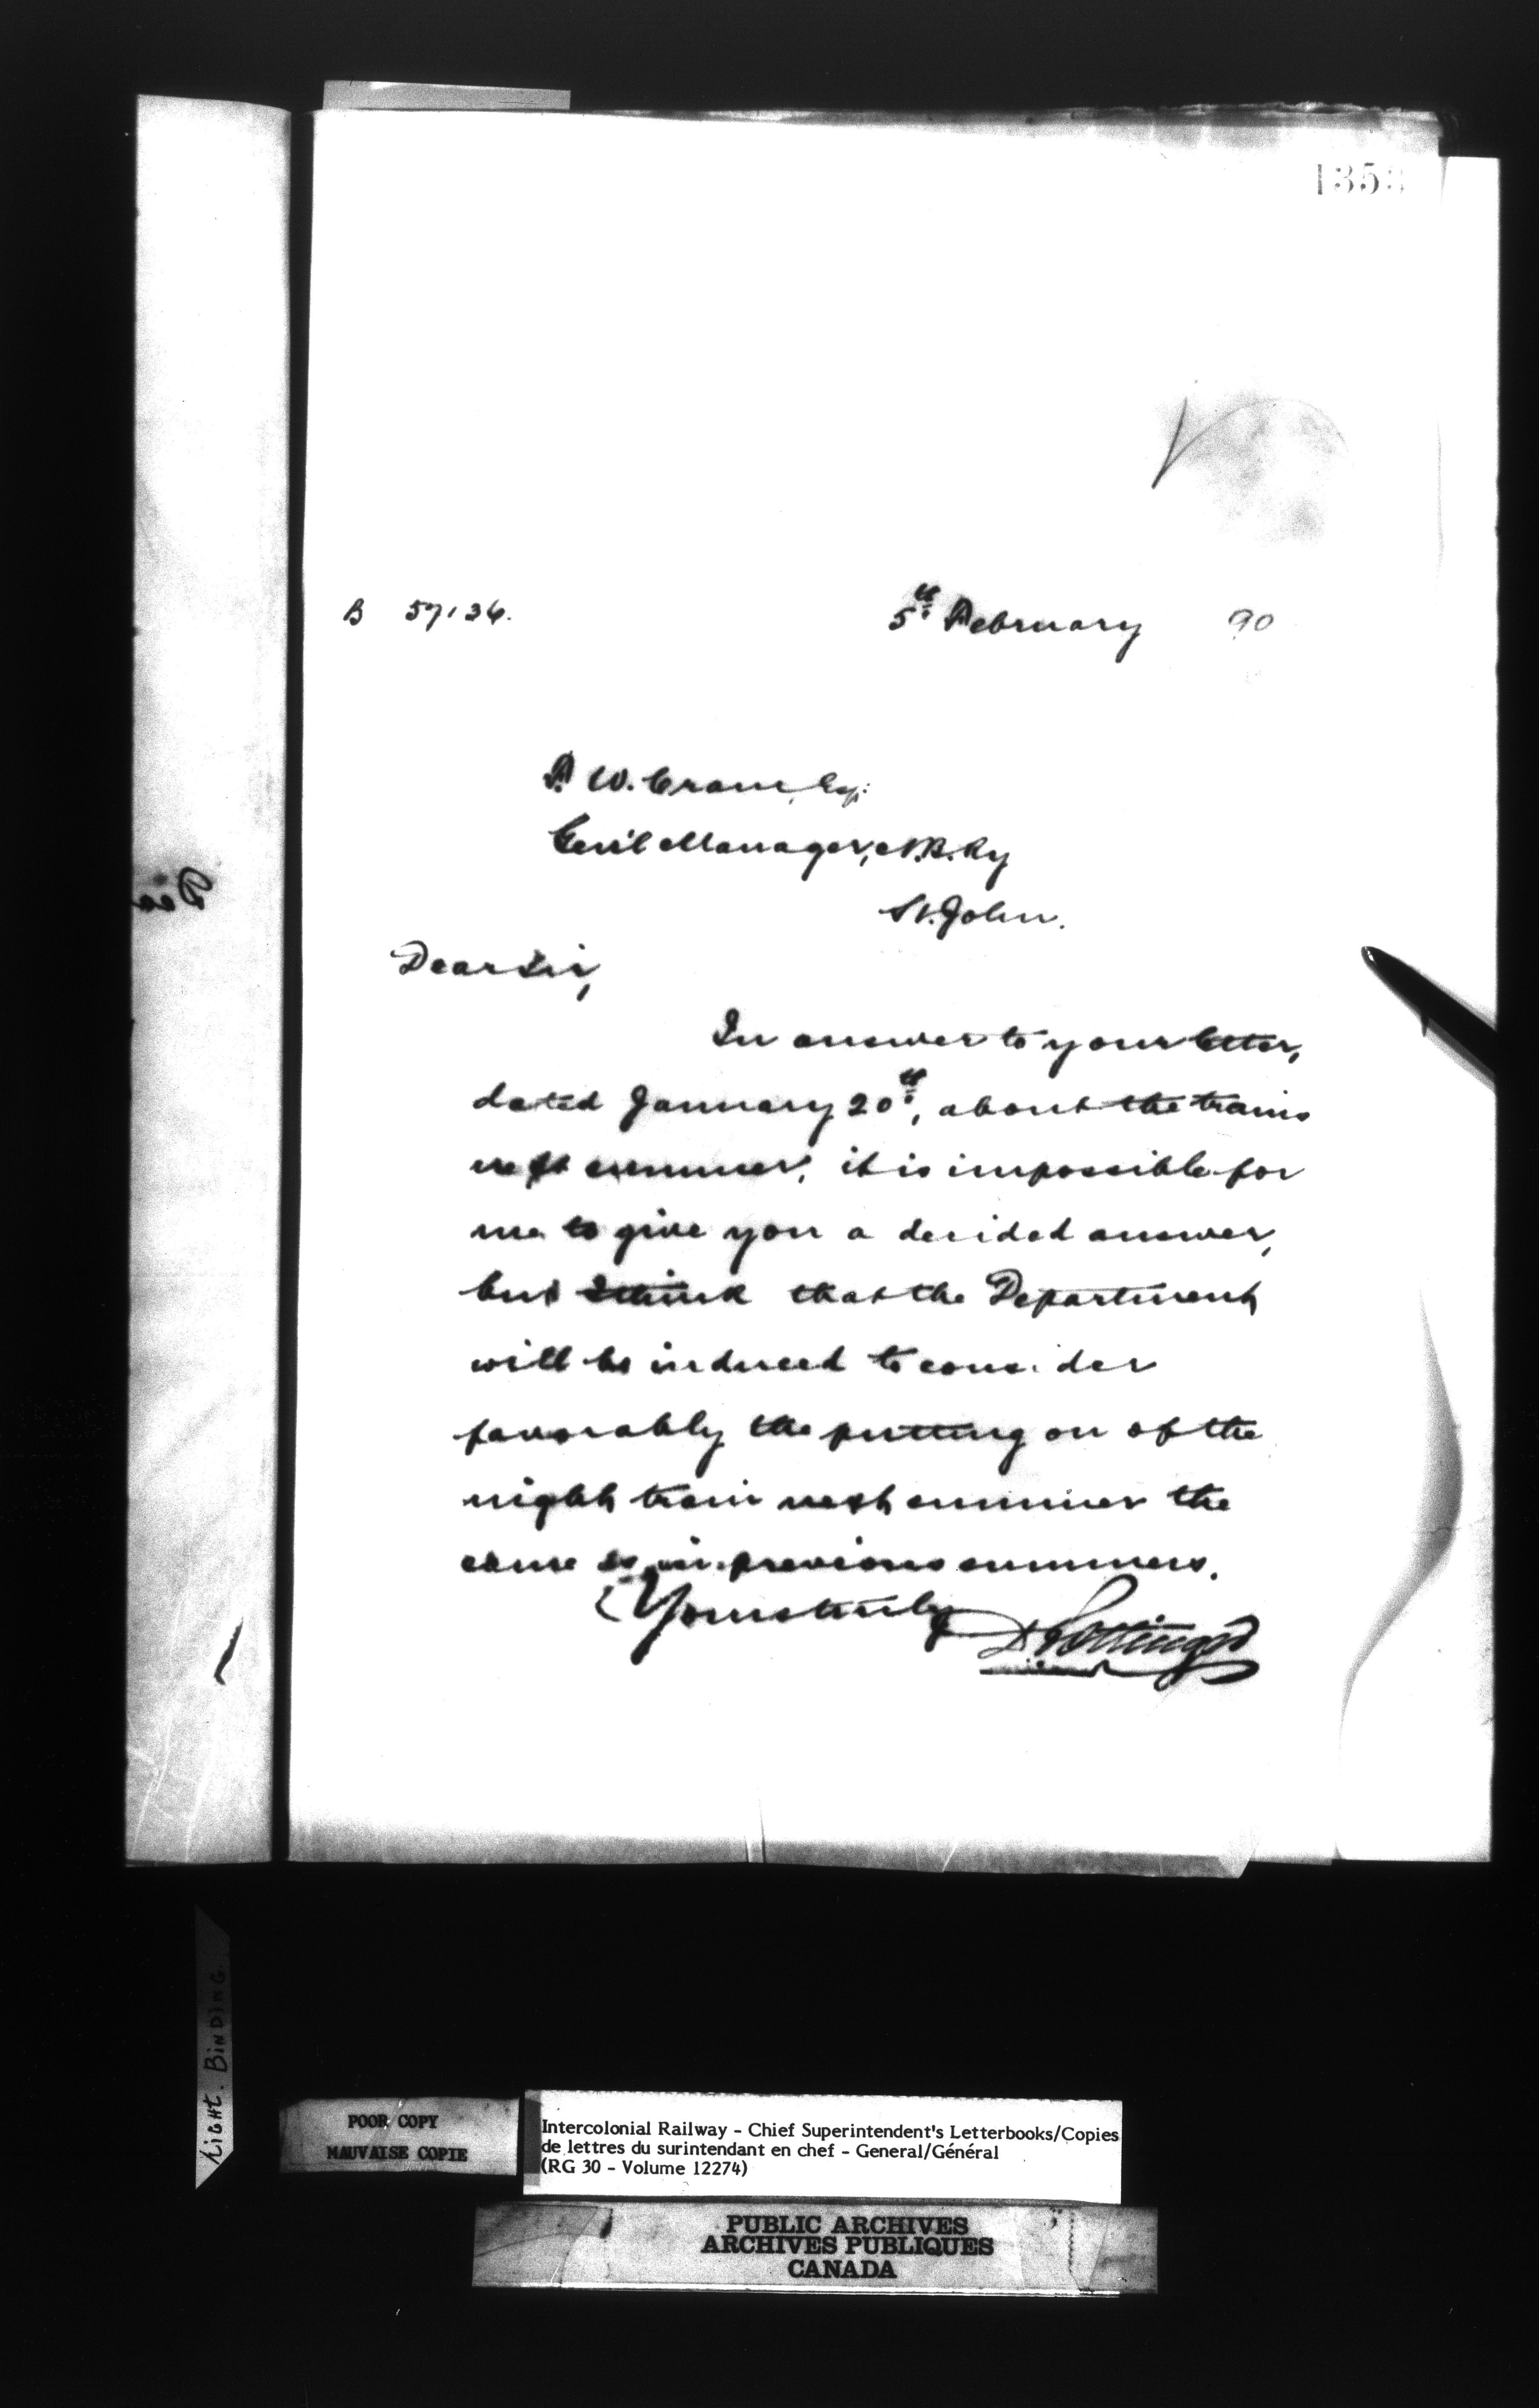 1353
B 57136.
5th February 90
F. W. Cram, Esq:
Gen'l Manager, N.B. Ry
St. John.
Dear Sir,
In answer to your letter,
dated January 20th, about the trains
next summer, it is impossible for
me to give you a decided answer,
but I think that the Department
will be induced to consider
favorably the putting on of the
night train next summer the
same as in previous summers.
Yours truly
D Pottinger
LIGHT. BINDING
POOR COPY
MAUVAISE COPIE
Intercolonial Railway - Chief Superintendent's Letterbooks/Copies
de lettres du surintendant en chef - General/Général
(RG 30 - Volume 12274)
PUBLIC ARCHIVES
ARCHIVES PUBLIQUES
CANADA